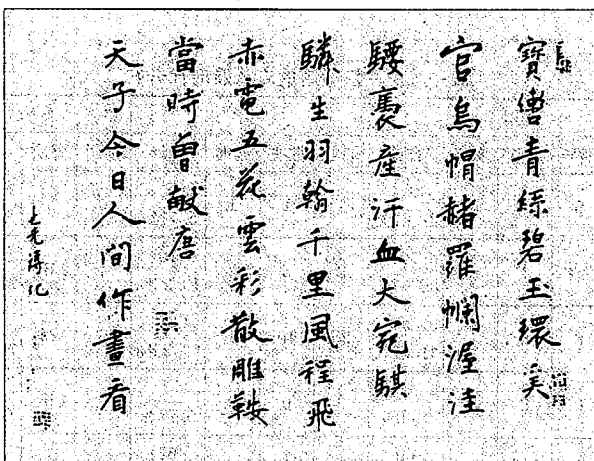 寶轡青絲碧玉環奚
官烏帽赭羅幱渥洼
騕褭産汗血大宛騏
驎生羽翰千里風程飛
赤電五花雲彩散雕鞍
當時曾獻唐
天子今日人間作畫看